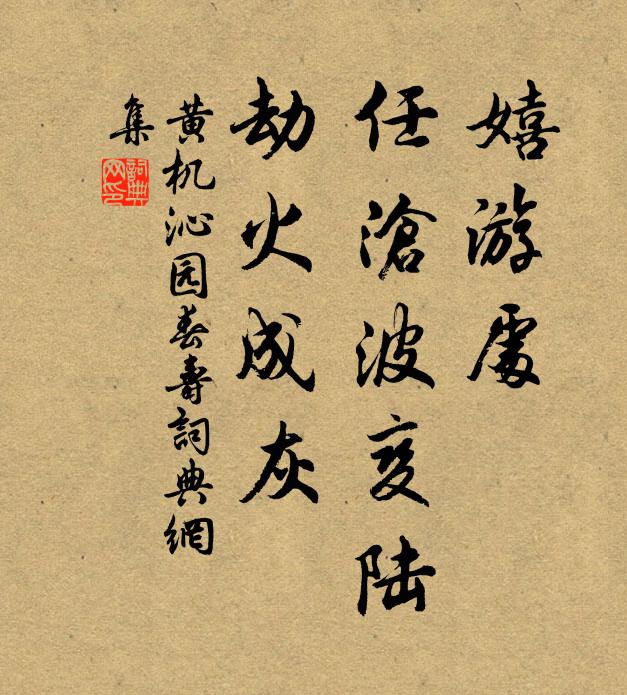 嬉游處
任滄波变陆
劫火成灰
黄机沁园春寿詞典網
集
詞典
网印